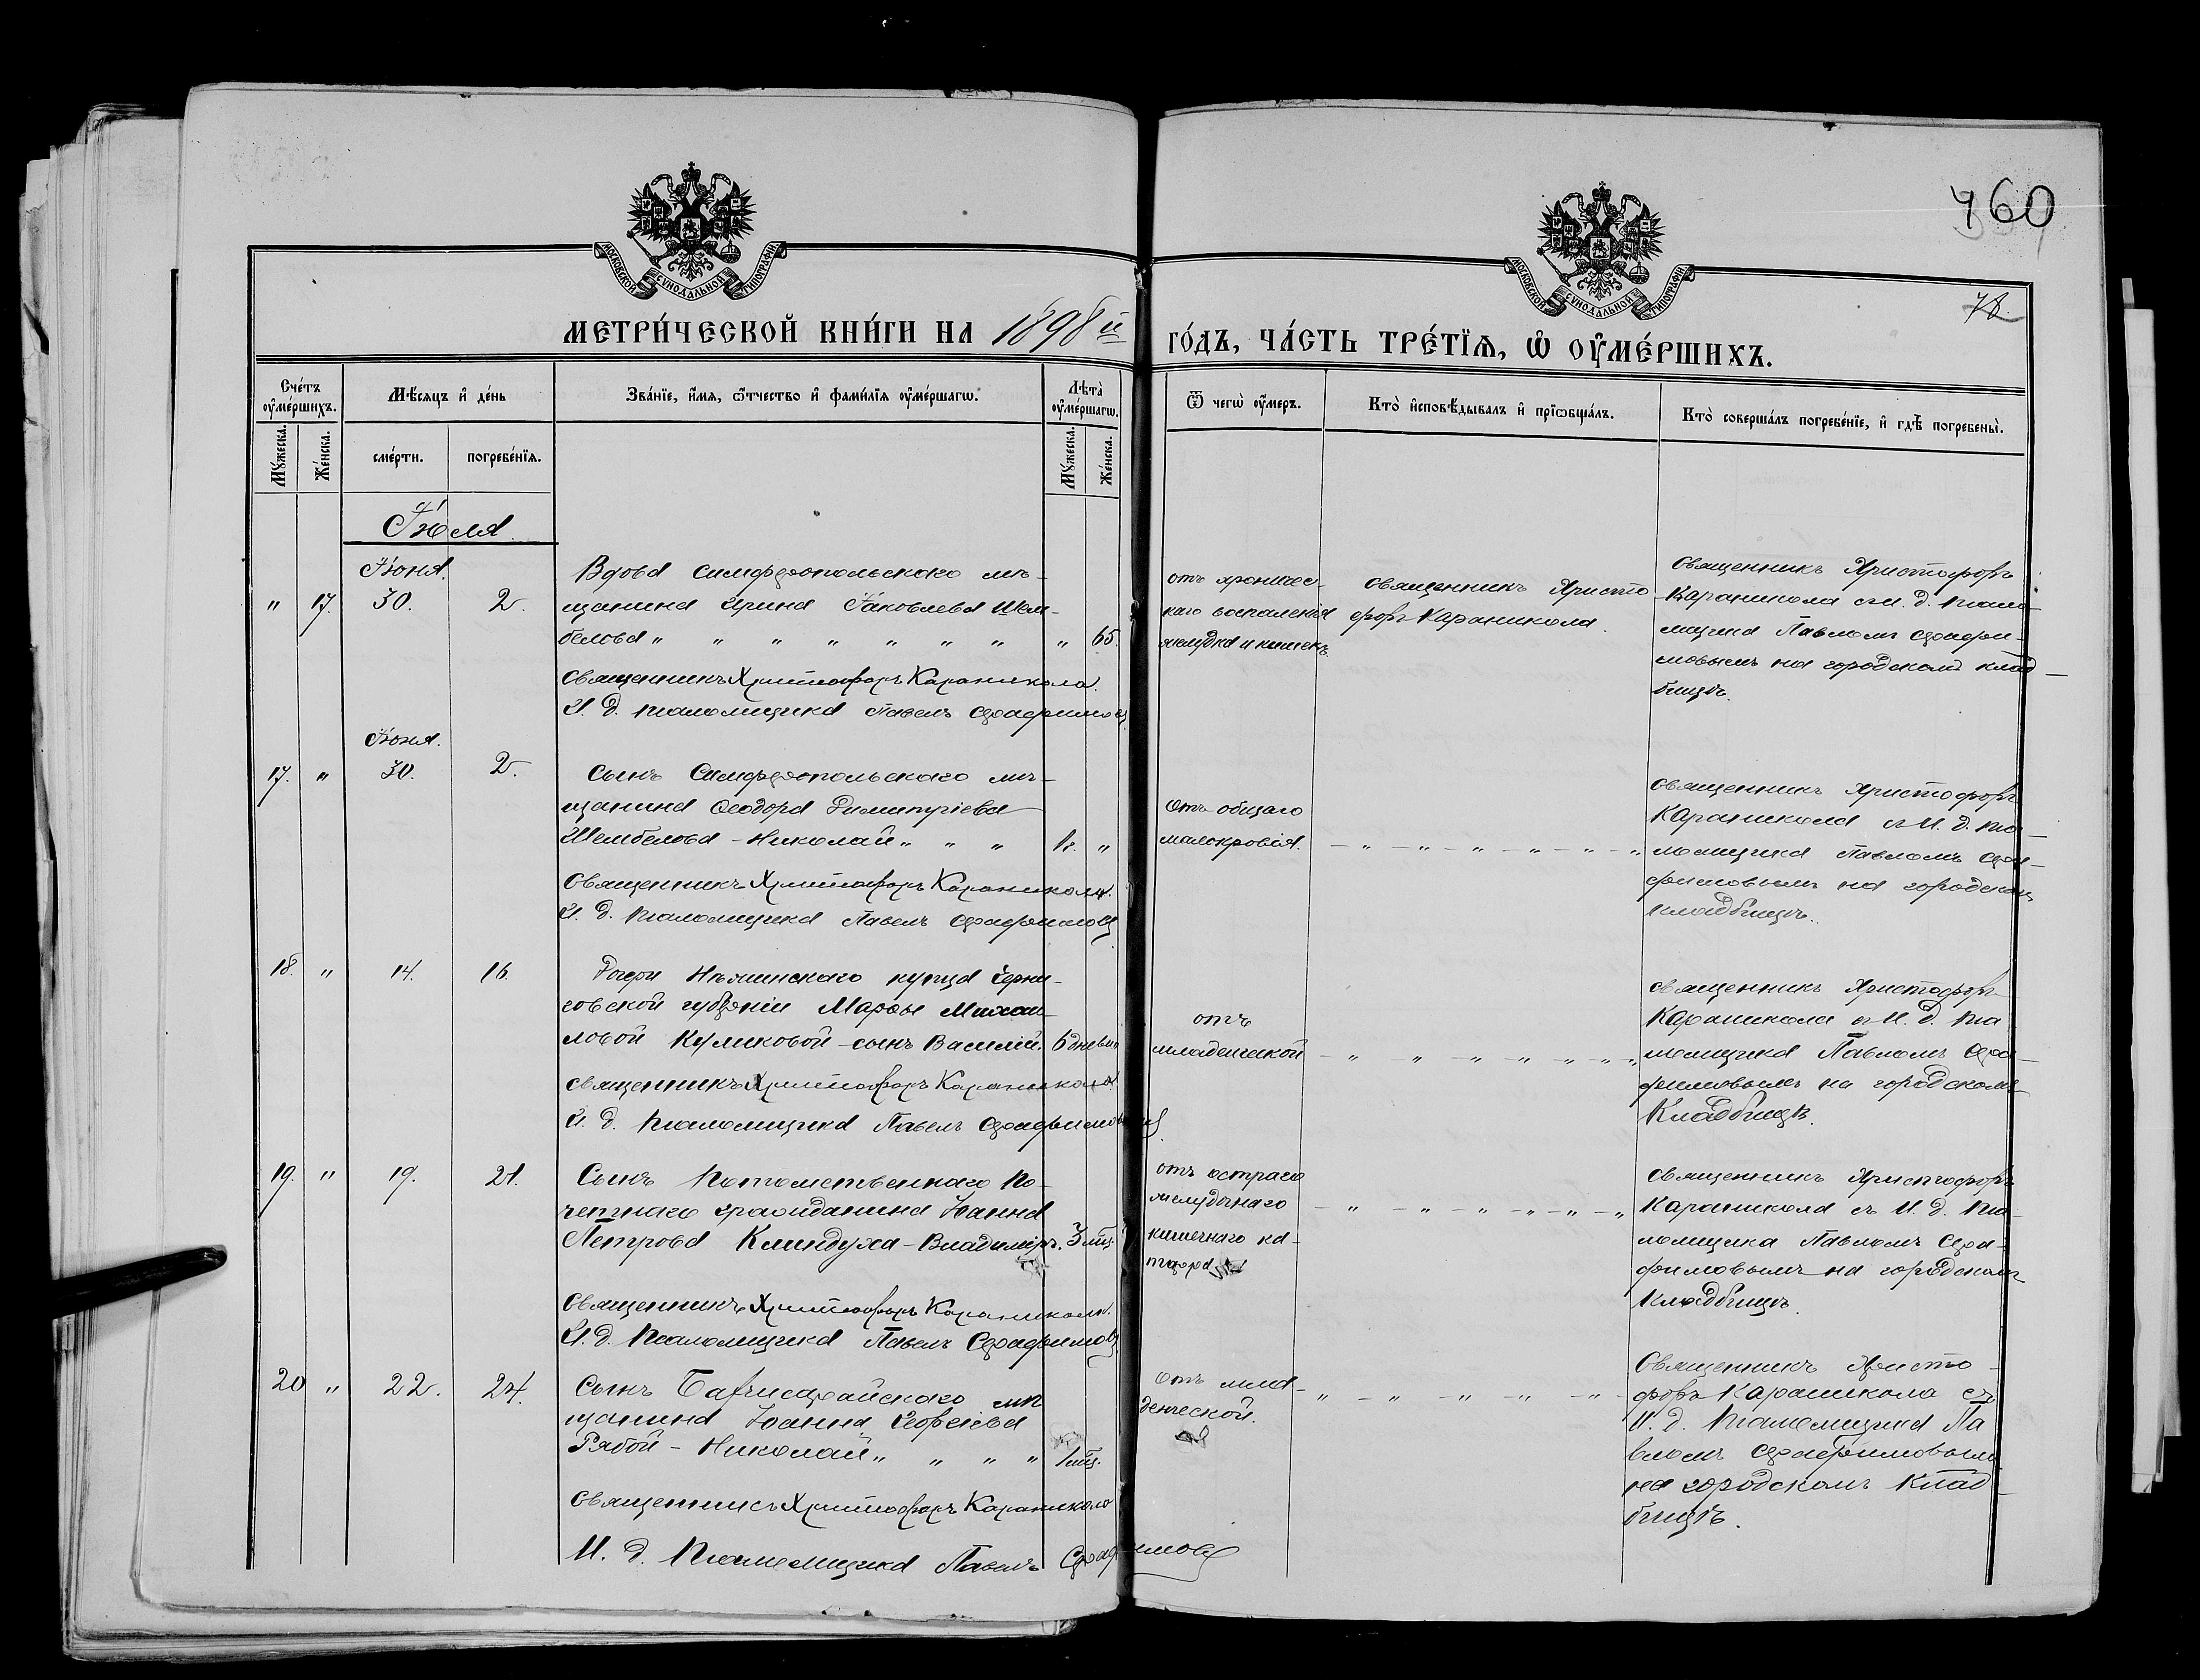 460
78.
МОСКОВСКОЙ СѴНОДАЛЬНОЙ ТИПОГРАФІИ
МОСКОВСКОЙ СѴНОДАЛЬНОЙ ТИПОГРАФІИ
МЕТРИ́ЧЕСКОЙ КНИ́ГИ НА 1898й
ГО́ДЪ, ЧА́СТЬ ТРЕ́ТЇѦ, Ѡ҆ ОУ҆МЕ́РШИХЪ.
Сче́тъ
оу҆ме́ршихъ.
Мѣ́сѧцъ и҆ де́нь
Зва́нїе, и҆́мѧ, ѻ҆́тчество и҆ фами́лїѧ оу҆ме́ршагѡ.
Лѣ́та
оу҆ме́ршагѡ.
Ѿ чегѡ̀ оу҆́меръ.
Кто̀ и҆сповѣ́дывалъ и҆ прїѡбща́лъ.
Кто̀ соверша́лъ погребе́нїе, и҆ гдѣ̀ погребены̀.
Мꙋ́жеска.
Же́нска.
сме́рти.
погребе́нїѧ.
Мꙋ́жеска.
Же́нска.
Іюля
Іюня.
" 17. 30. 2.
Вдова Симферопольскаго мѣ-
щанина Ирина Іаковлева Шем-
белова " " " " " " " " 65.
Священникъ Христофоръ Караникола.
И. д. псаломщика Павелъ Серафимовъ
отъ хроничес-
каго воспаленія
желудка и кишекъ.
Священникъ Христо-
форъ Караникола.
Священникъ Христофоръ
Караникола съ И. д. псало-
мщика Павломъ Серафи-
мовымъ на городскомъ клад-
бищѣ.
Іюня.
17. " 30. 2.
Сынъ Симферопольскаго мѣ-
щанина Ѳеодора Димитріева
Шембелова - Николай " " " 1г. "
Священникъ Христофоръ Караникола.
И. д. псаломщика Павелъ Серафимовъ
Отъ общаго
малокровія. - " - " - " - " - " - "
Священникъ Христофоръ
Караникола съ И. д. пса-
ломщика Павломъ Сера-
фимовымъ на городском
кладбищѣ.
18. " 14. 16.
Дочери Нѣжинскаго купца Черни-
говской губерніи Марѳы Михаи-
ловой Куликовой - сынъ Василій. 6 дневн
священникъ Христофоръ Караникола
И. д. псаломщика Павелъ Серафимовъ
отъ
младенческой - " " - " " " "
священникъ Христофоръ
Караникола съ И. д. пса
ломщика Павломъ Сера-
фимовымъ на городскомъ
Кладбищѣ.
19. " 19. 21.
Сынъ Потомственнаго По-
четнаго гражданина Іоанна
Петрова Климдуха - Владиміръ. 3 мѣц.
Священникъ Христофоръ Караникола.
И. д. псаломщика Павелъ Серафимовъ
отъ остраго
желудочнаго
кишечнаго ка-
тарра - " - " - " - " - " - "
священникъ Христофоръ
Караникола съ И. д. пса-
ломщика Павломъ Сера-
фимовымъ на городскомъ
кладбищѣ.
20 " 22. 24.
Сынъ Бахчисарайскаго мѣ
щанина Іоанна Георгіева
Рябой - Николай " " " " 1 мѣц.
Священникъ Христофоръ Караникола
И. д. Псаломщика Павелъ Серафимовъ
Отъ мла-
денческой. " - " - " - " - "
Священникъ Христо-
форъ Караникола съ
И. д. псаломщика Па
вломъ Серафимовымъ
на городскомъ клад-
бищѣ.